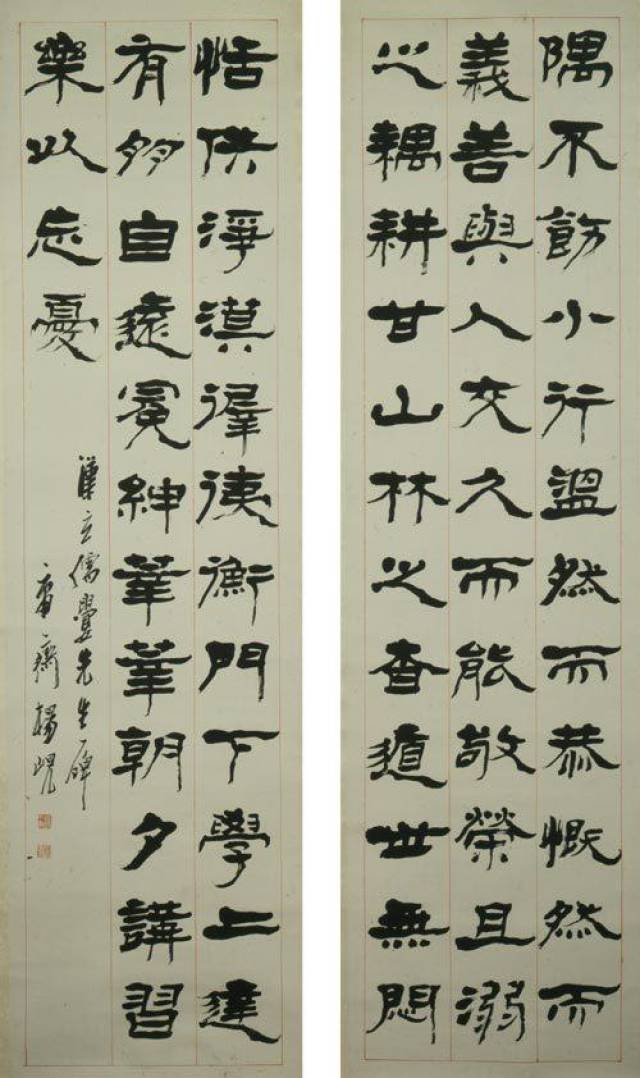 隅不飭小行溫然而恭慨然而
義善與人交久而能敬榮且溺
之耦耕甘山林之杳遁世無悶
恬佚淨漠徲𢓡衡門下學上達
有朋自遠冕紳莘莘朝夕講習
樂以忘憂
漢玄儒婁先生碑
庸齋楊峴